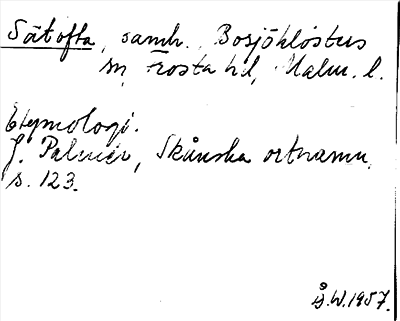 Sätofta, samh., Bosjöklosters
sn, Frosta hd, Malm. l.
Etymologi.
J. Palmér, Skånska ortnamn,
s. 123.
Å.W.1957.